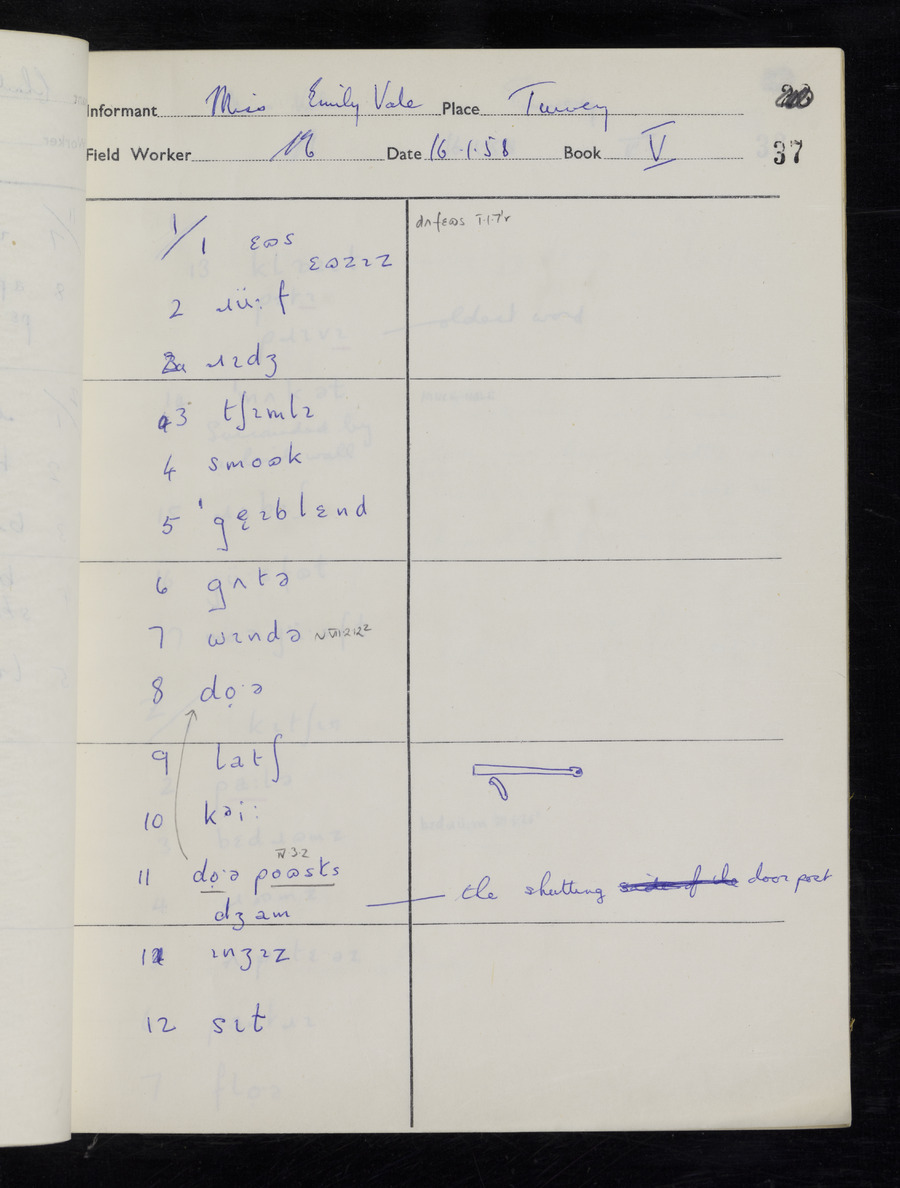 Informant Miss Emily Vale Place Turvey
Field Worker Date 16.1.58 Book V 37
1/1 ɛʊs
ɛʊzɪz
dʌfɛʊs I.1.7'r
2 ɹïi:f
2a ɹɪdʒ
3 tʃɪmlɪ
4 smoʊk
5 'gɛɪblɛnd
6 gʌtə
7 wɪndə
8 dọ·ə
9 latʃ
10 kəi:
IV 3.2
11 dọ·ə poʊsts
dʒam the shutting side of the door post
11 ɪnʒɪz
12 sɪt